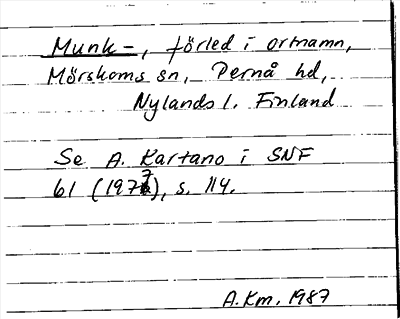 Munk-, förled i ortnamn,
Mörskoms sn, Pernå hd,
Nylands l. Finland
Se A. Kartano i SNF
61 (1977), s. 114.
A.Km. 1987